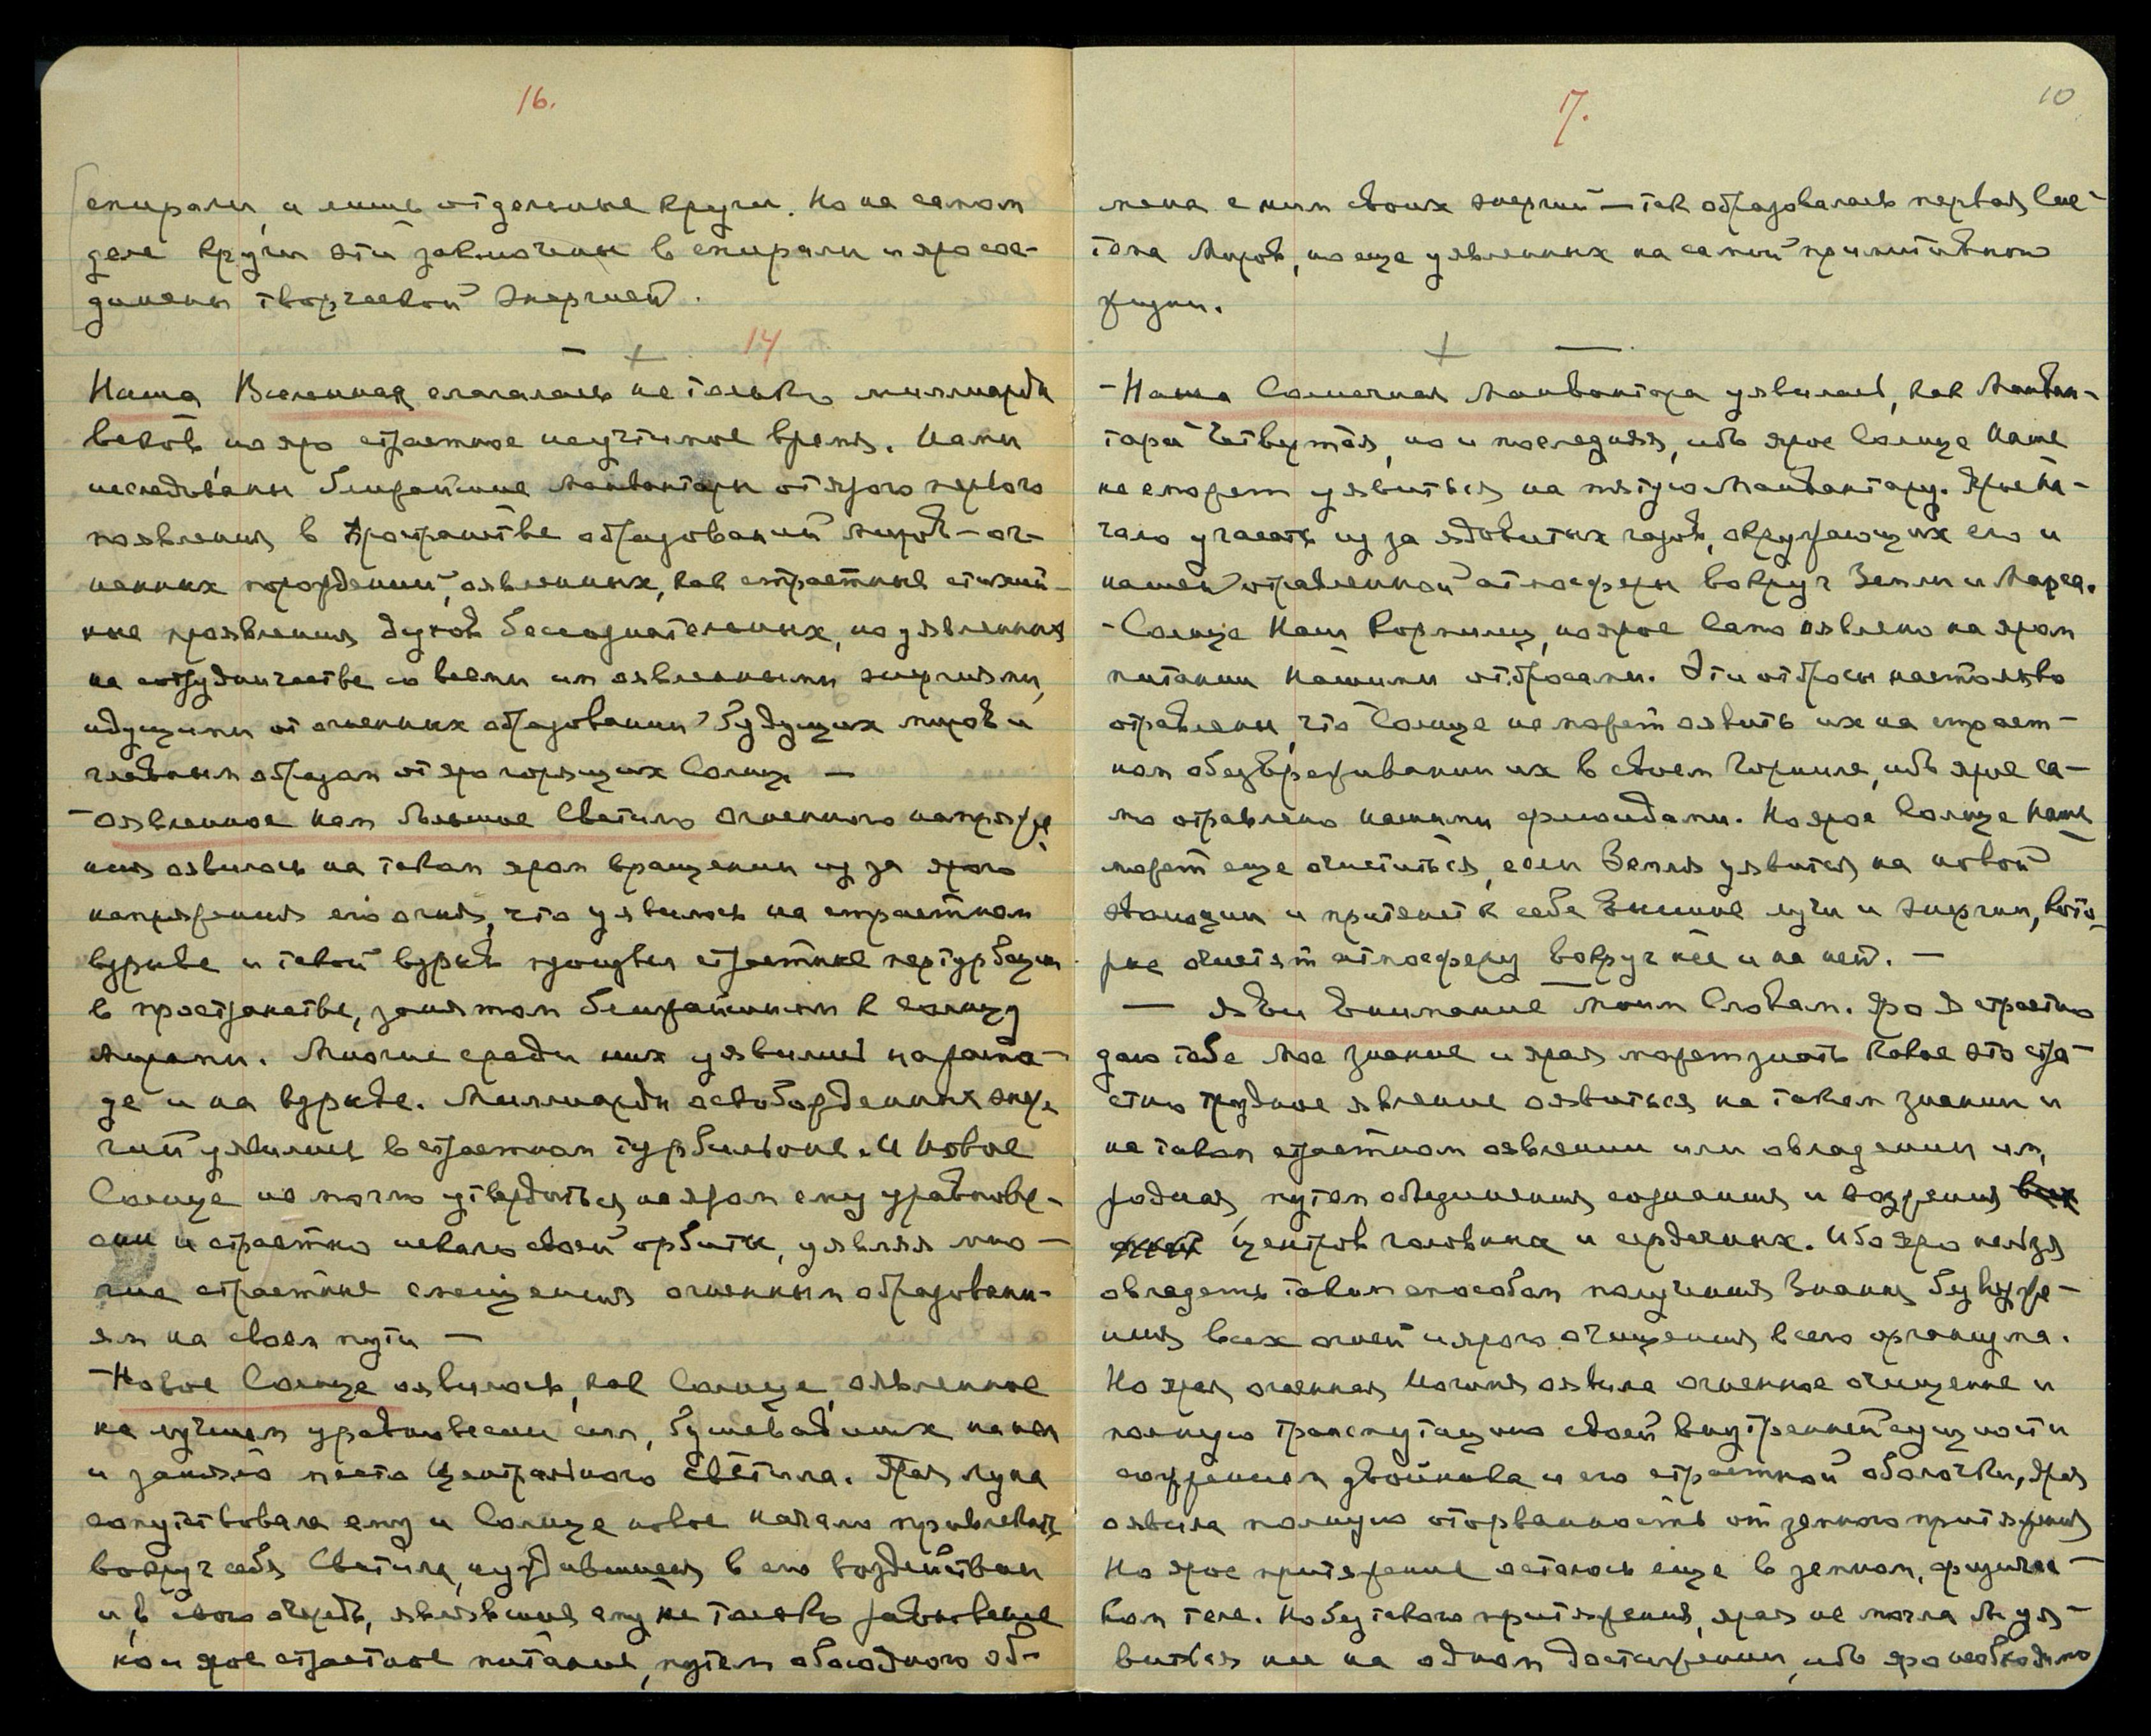 16.
спирали, и лишь отдельные круги. Но на самом
деле круги эти заключены в спирали и яро сое-
динены творческой энергией.
14
Наша Вселенная слагалась не только миллиарды
веков, но яро страстное неучтимое время. Нами
исследованы ближайшие Манвантары от ярого первого
появления в Пространстве образований миров — ог-
ненных порождений, оявленных, как страстные стихий-
ные проявления духов бессознательных, но уявленных
на сотрудничестве со всеми им оявленными энергиями,
идущими от огненных образований будущих миров и
главным образом от яро горящих Солнц —
— оявленное нам бывшее Светило огненного напряже-
ния оявилось на таком яром вращении из за ярого
напряжения его огня, что уявилось на страстном
взрыве и такой взрыв произвел страстные пертурбации
в пространстве, занятом ближайшими к солнцу
мирами. Многие среди них уявились на распа-
де и на взрыве. Миллиарды освобожденных энер-
гий уявились в страстном турбильоне. И Новое
Солнце не могло утвердиться на яром ему уравнове-
сии и страстно искало своей орбиты, уявляя мно-
гие страстные смещения огненным образовани-
ям на своем пути —
— Новое Солнце оявилось, как Солнце, оявленное
на лучшем уравновесии сил, бушевавших на нем
и заняло место Центрального Светила. Ярая Луна
сопутствовала ему и Солнце новое начало привлекать
вокруг себя Светила, нуждавшиеся в его воздействии
и, в свою очередь, являвшие ему не только равновесие
но и ярое страстное питание, путем обоюдного об-
17.
10
мена с ним своих энергий — так образовалась первая Сис-
тема Миров, но еще уявленных на самой примитивной
жизни.
— Наша Солнечная Манвантара уявилась, как Манван-
тара Четвертая, но и последняя, ибо ярое Солнце Наше
не сможет уявиться на пятую Манвантару. Ярое На-
чало угасать из за ядовитых газов, окружающих его и
нашей отравленной атмосферы вокруг Земли и Марса.
— Солнце Наш Кормилец, но ярое Само оявлено на яром
питании нашими отбросами. Эти отбросы настолько
отравлены, что Солнце не может оявить их на страст-
ном обезвреживании их в своем Горниле, ибо ярое са-
мо отравлено нашими флюидами. Но ярое Солнце Наше
может еще очиститься, если Земля уявится на новой
эволюции и притянет к себе Высшие лучи и энергии, кото-
рые очистят атмосферу вокруг нее и на ней. —
— Яви внимание Моим Словам. Яро Я страстно
даю тебе Мое Знание и ярая может знать какое это стра-
стно трудное явление оявиться на таком знании и
на таком страстном оявлении или овладении им,
родная, путем объединения сознания и воззрения
центров головных и сердечных. Ибо яро нельзя
овладеть таким способом получения Знания без
ния всех огней и ярого очищения всего организма.
Но ярая огненная оявила огненное очищение и
полную трансмутацию своей внутренней сущности
сожжением двойника и его страстной оболочки, ярая
оявила полную оторванность от земного притяжения
Но ярое притяжение осталось еще в земном, физичес-
ком теле. Но без такого притяжения, ярая не могла бы уя-
виться ни на одном достижении, ибо яро необходимо